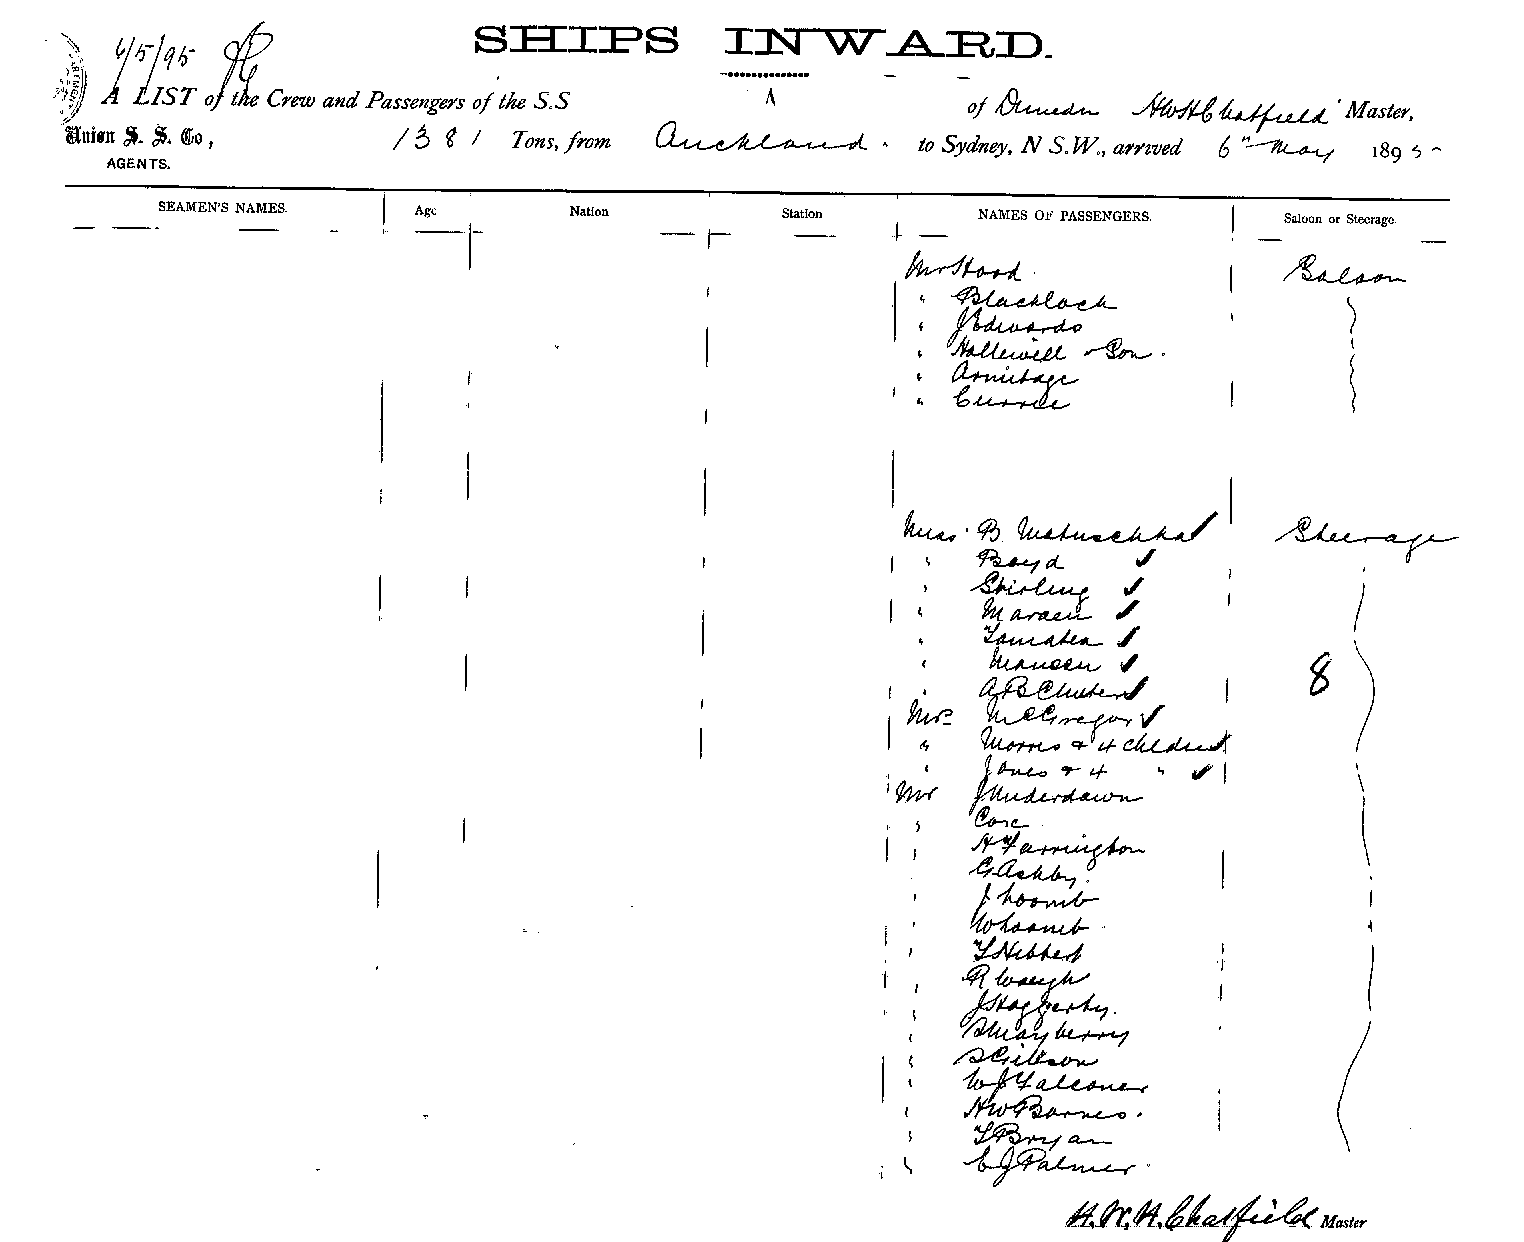 SHIPS INWARD.
6/5/95
A LIST of the Crew and Passengers of the S.S of Dunedin HWHChatfield Master,
Union S. S. Co, 1381 Tons, from Auckland. to Sydney, N S.W., arrived 6th May 1895
AGENTS.
SEAMEN'S NAMES. Age Nation Station NAMES OF PASSENGERS. Saloon or Steerage.
Mr Hood Saloon
" Blacklock
" J Edwards
" Hallewell & Son.
" Armitage
" Currie
Miss B. Matuschka Steerage
" Boyd
" Stirling
"
"
"
"
Mrs McGregor
" Morris & 4 children
" Jones & 4 "
Mr J Underdown
" Coxe
" H Farrington
" G Ashby.
" J Loomb
" W Loomb
" T Hibbert
" R Waugh
" J Haggerty.
" S Mayberry
" S Gibson
" WJ Falconer
" HW Barnes.
" T Bryan
" CJ Palmer.
8
H.W.H.Chatfield Master